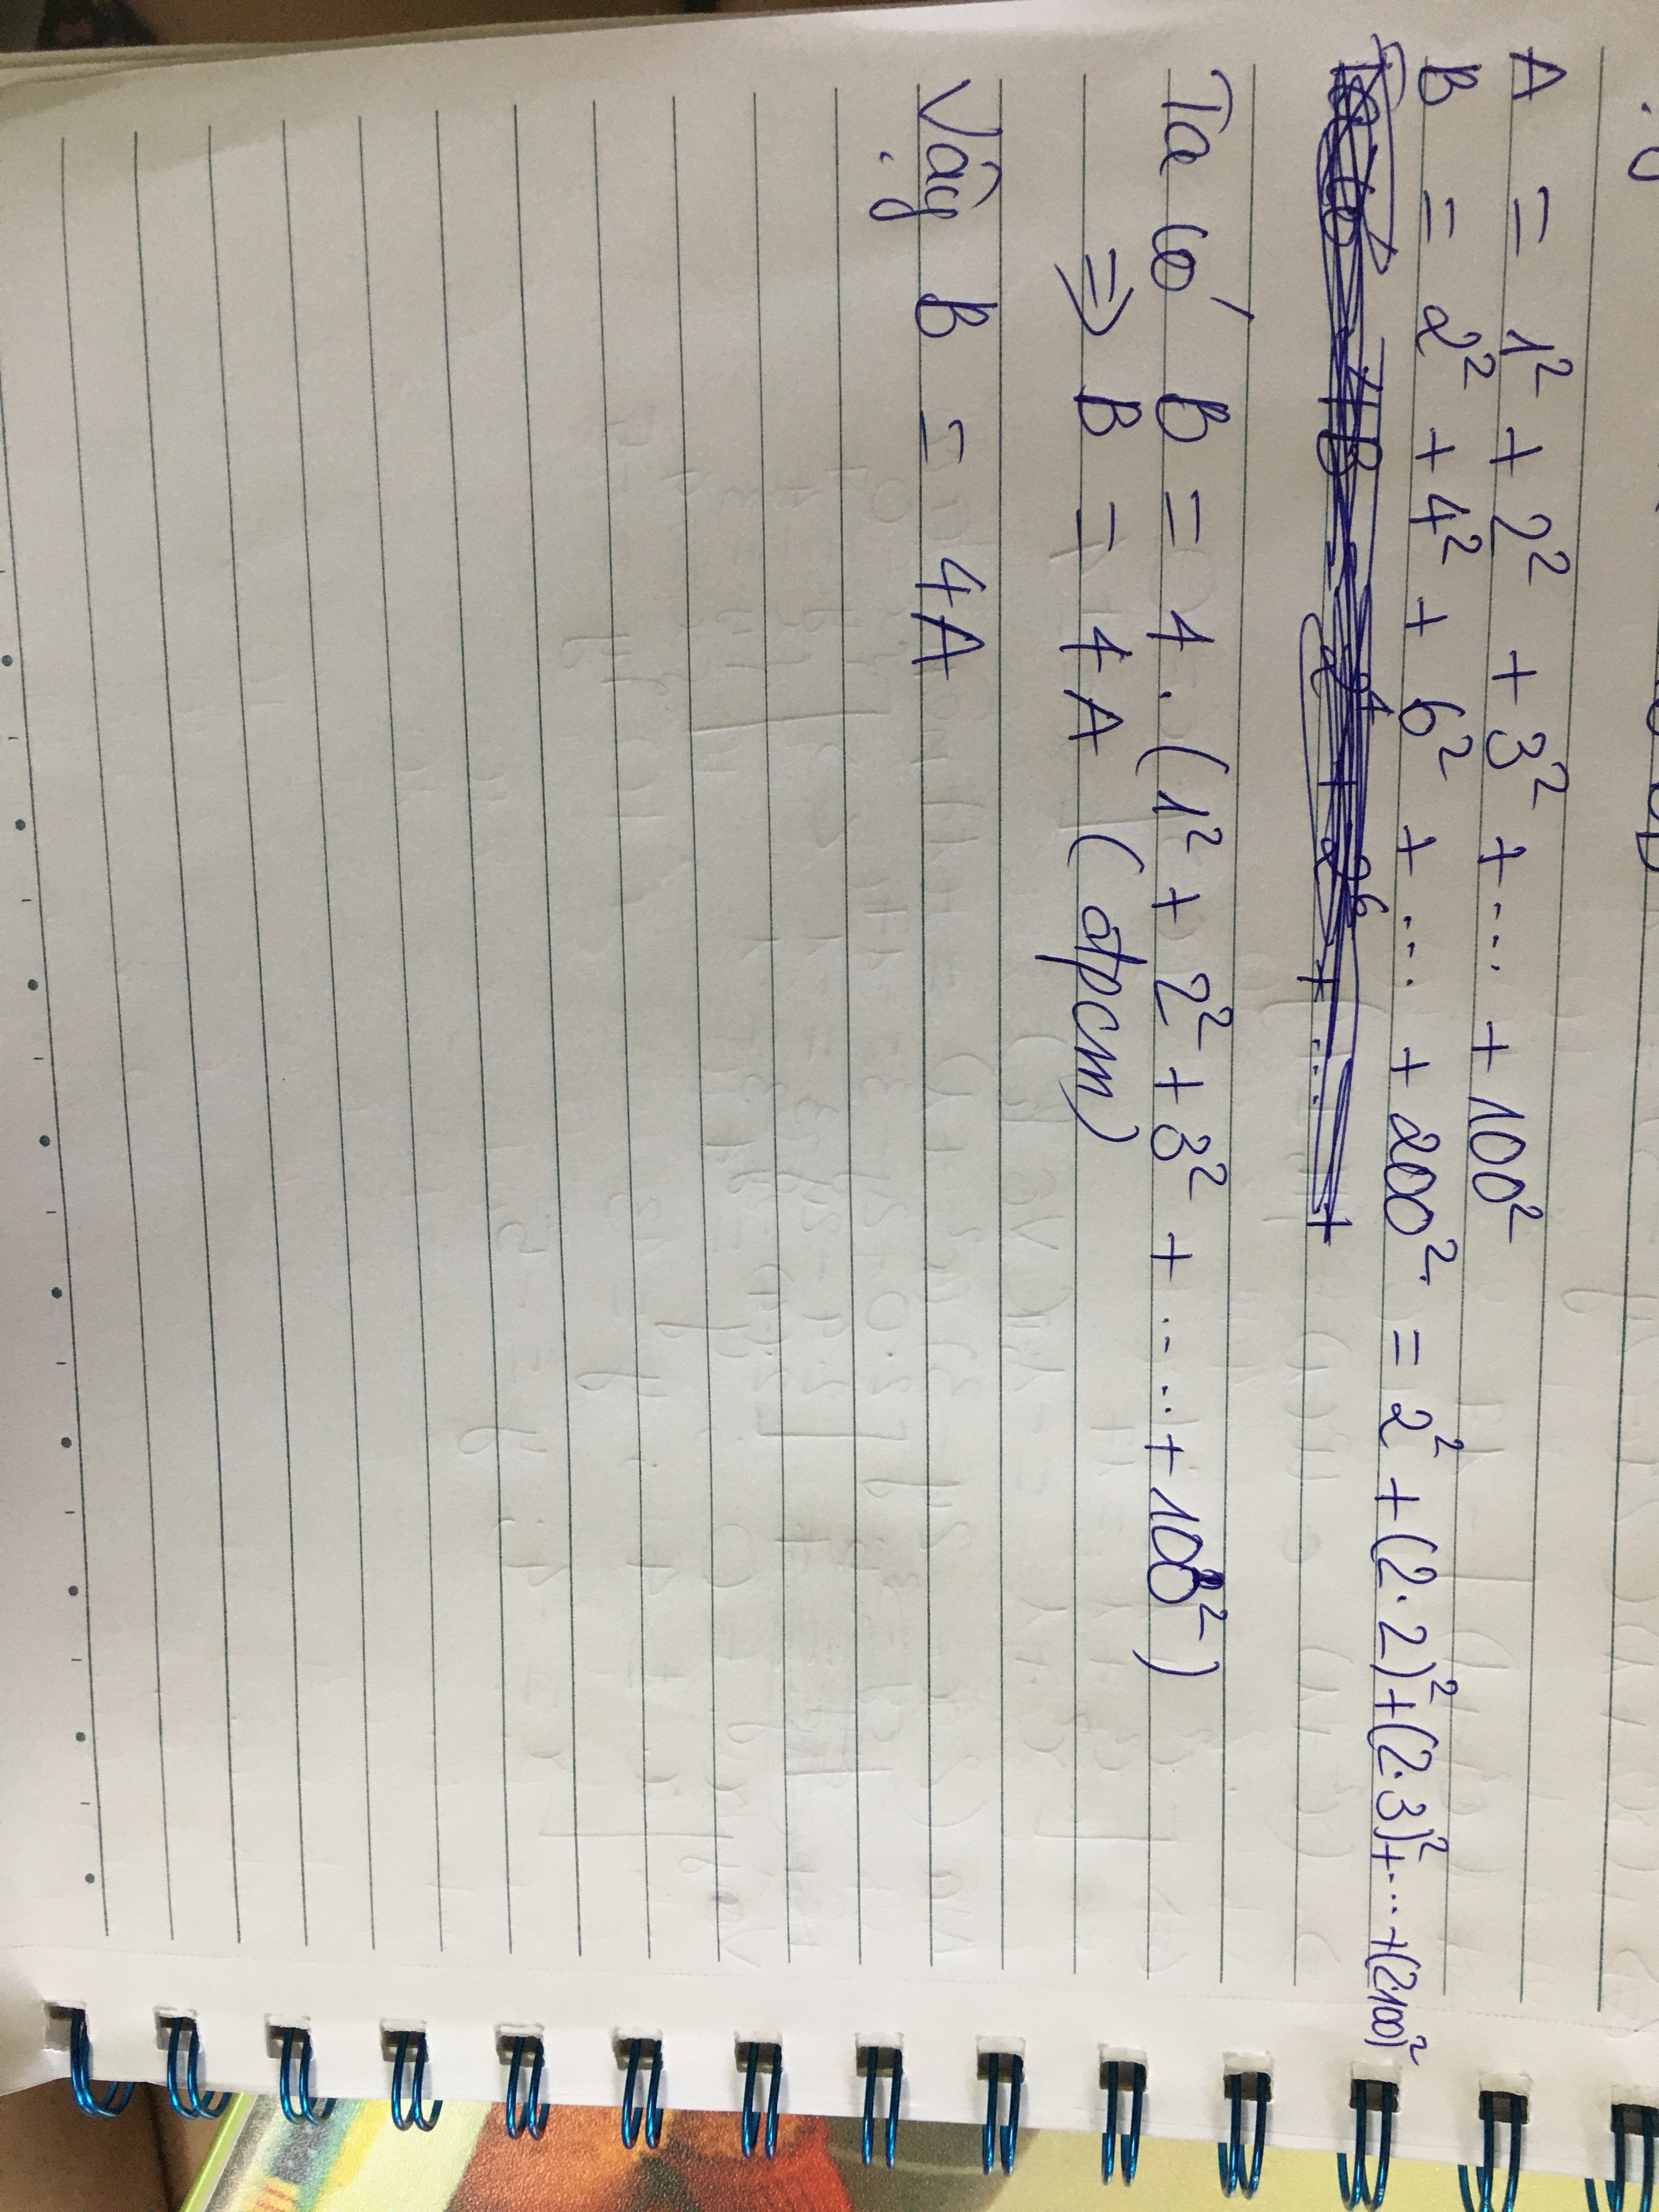 A = 1² + 2² + 3² + ... + 100²
B = 2² + 4² + 6² + ... + 200² = 2² + (2.2)² + (2.3)² + ... + (2.100)²
Ta có B = 4 . (1² + 2² + 3² + .... + 100²)
⇒ B = 4A (đpcm)
Vậy B = 4A